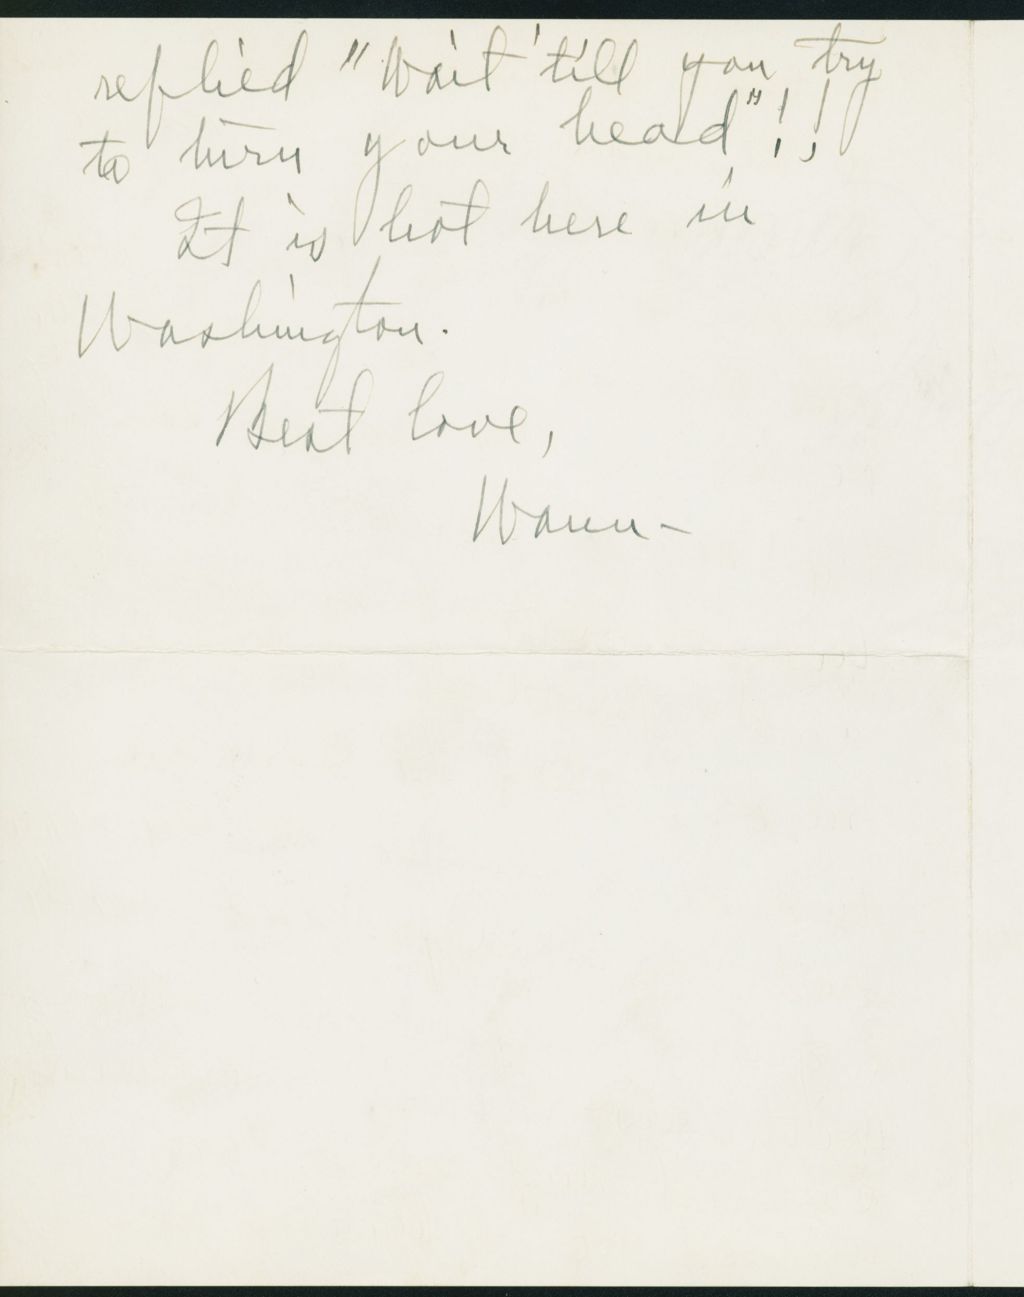 replied "Wait 'till you try
to turn your head"!!
It is hot here in
Washington.
Best love,
Wann –